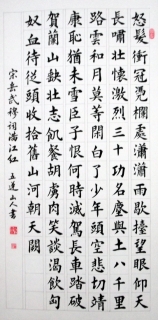 怒髮衝冠憑欄處瀟瀟雨歇擡望眼仰天
長嘯壯懷激烈三十功名塵與土八千里
路雲和月莫等閒白了少年頭空悲切靖
康恥猶未雪臣子恨何時滅駕長車踏破
賀蘭山缺壯志飢餐胡虜肉笑談渴飲匈
奴血待從頭收拾舊山河朝天闕
宋岳武穆詞滿江紅 五蓮山人書